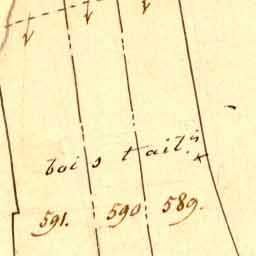 bois tail.is
591. 590 589.